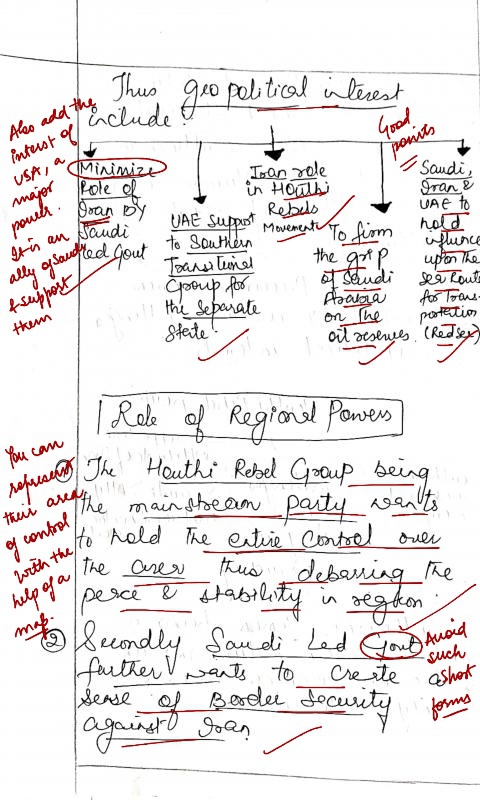 Thus geopolitical interest
include
Also add the
interst of
USA, a
major
power.
It is an
ally of Saudi
& support
them
Good
points
Minimize
Role of
Iran By
Saudi
led Govt
UAE Support
to Southern
Transitional
Group for
the Separate
State.
Iran role
in Houthi
Rebels
Movement
To firm
the grip
of Saudi
Arabia
on The
oil reserves
Saudi,
Iran &
UAE to
hold
influence
upon the
sea Route
for Trans-
portation
(Red Sea)
Role of Regional Powers
You can
represent
their area
of control
with the
help of a
map.
① The Houthi Rebel Group being
the mainstream party wants
to hold The entire Control over
the area thus debarring the
peace & stability in region.
② Secondly Saudi Led Govt
further wants to Create a
sense of Border Security
against Iran
Avoid
such
short
forms